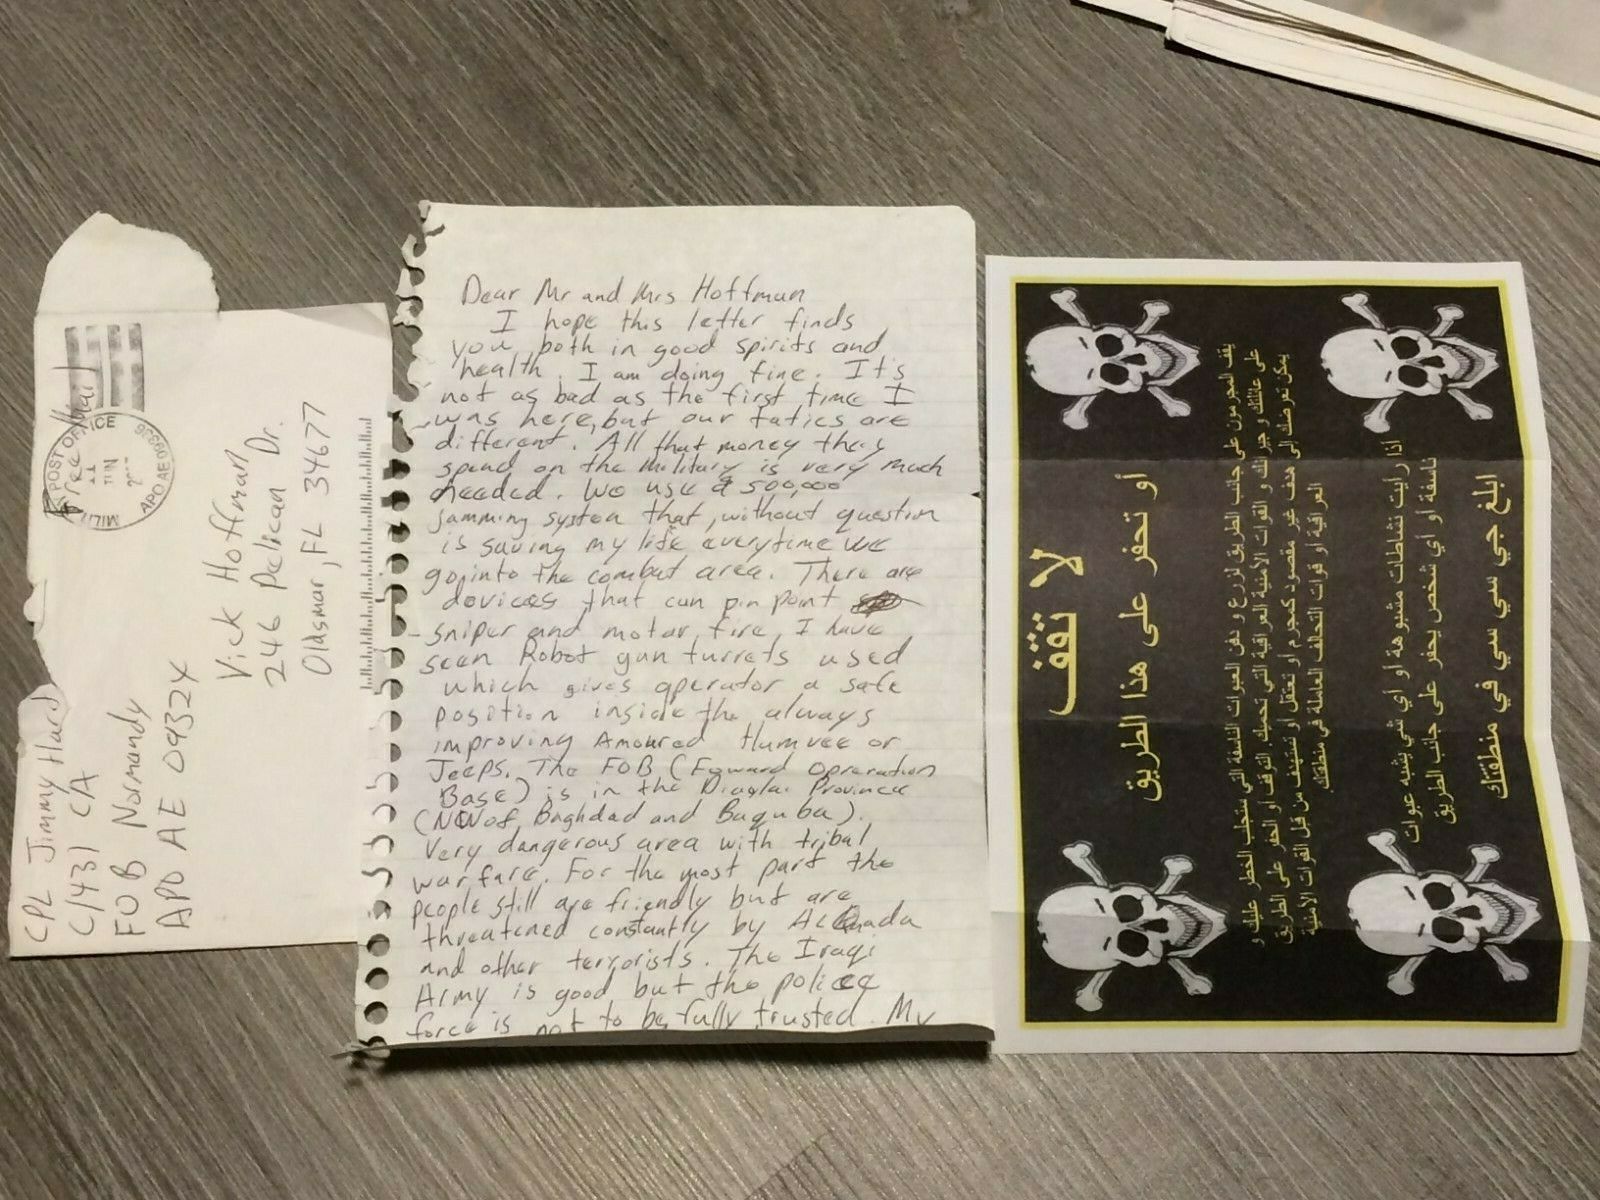 CPL Jimmy Hurd
C/431 CA
FOB Normandy
APO AE 09324
Free Mail
MILIT POST OFFICE
11
JUN
APO AE 093
Vick Hoffman
246 Pelican Dr.
Oldsmar, FL 34677
Dear Mr and Mrs Hoffman
I hope this letter finds
you both in good spirits and
health. I am doing fine. It's
not as bad as the first time I
was here, but our tatics are
different. All that money they
spend on the military is very much
needed. We use a 500,000
jamming system that, without question
is saving my life everytime we
go into the combat area. There are
devices that can pin point
sniper and motar fire, I have
seen Robot gun turrets used
which gives operator a safe
position inside the always
improving Amoured Humvee or
Jeeps. The FOB (Foward Opreration
Base) is in the Diaglai Province
(NW of Baghdad and Baquba).
Very dangerous area with tribal
warfare. For the most part the
people still are friendly but are
threatened constantly by AlQuada
and other terrorists. The Iraqi
Army is good but the police
force is not to be fully trusted. My
لا تقف
أو تحفر على هذا الطريق
يقف المجرمون على جانب الطريق لزرع و دفن العبوات الناسفة التي ستجلب الخطر عليك و
على عائلتك و جيرانك و القوات الأمنية العراقية التي تحميك. التوقف أو الحفر على الطريق
يمكن تعرضك إلى هدف غير مقصود كمجرم أو تعتقل أو تستهدف من قبل القوات الأمنية
العراقية أو قوات التحالف العاملة في منطقتك
اذا رأيت نشاطات مشبوهة او اي شي يشبه عبوات
ناسفة او اي شخص يحفر على جانب الطريق
ابلغ جي سي سي في منطقتك